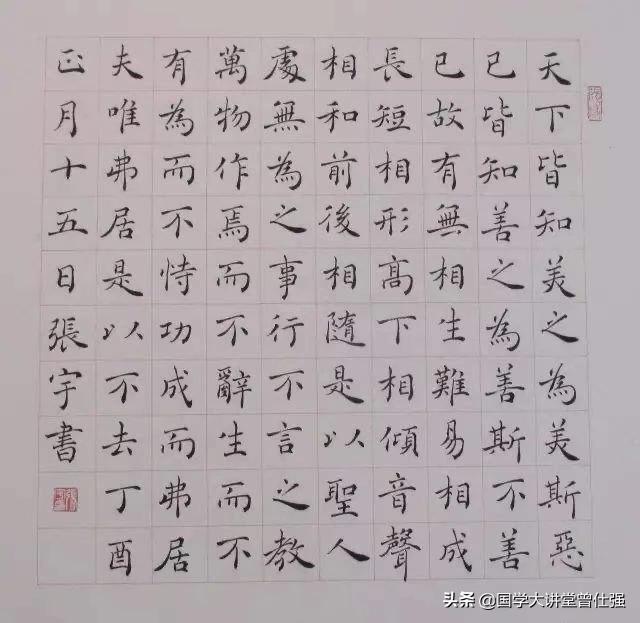 天下皆知美之為美斯惡
已皆知善之為善斯不善
已故有無相生難易相成
長短相形高下相傾音聲
相和前後相隨是以聖人
處無為之事行不言之教
萬物作焉而不辭生而不
有為而不恃功成而弗居
夫唯弗居是以不去丁酉
正月十五日張宇書
头条 @国学大讲堂曾仕强